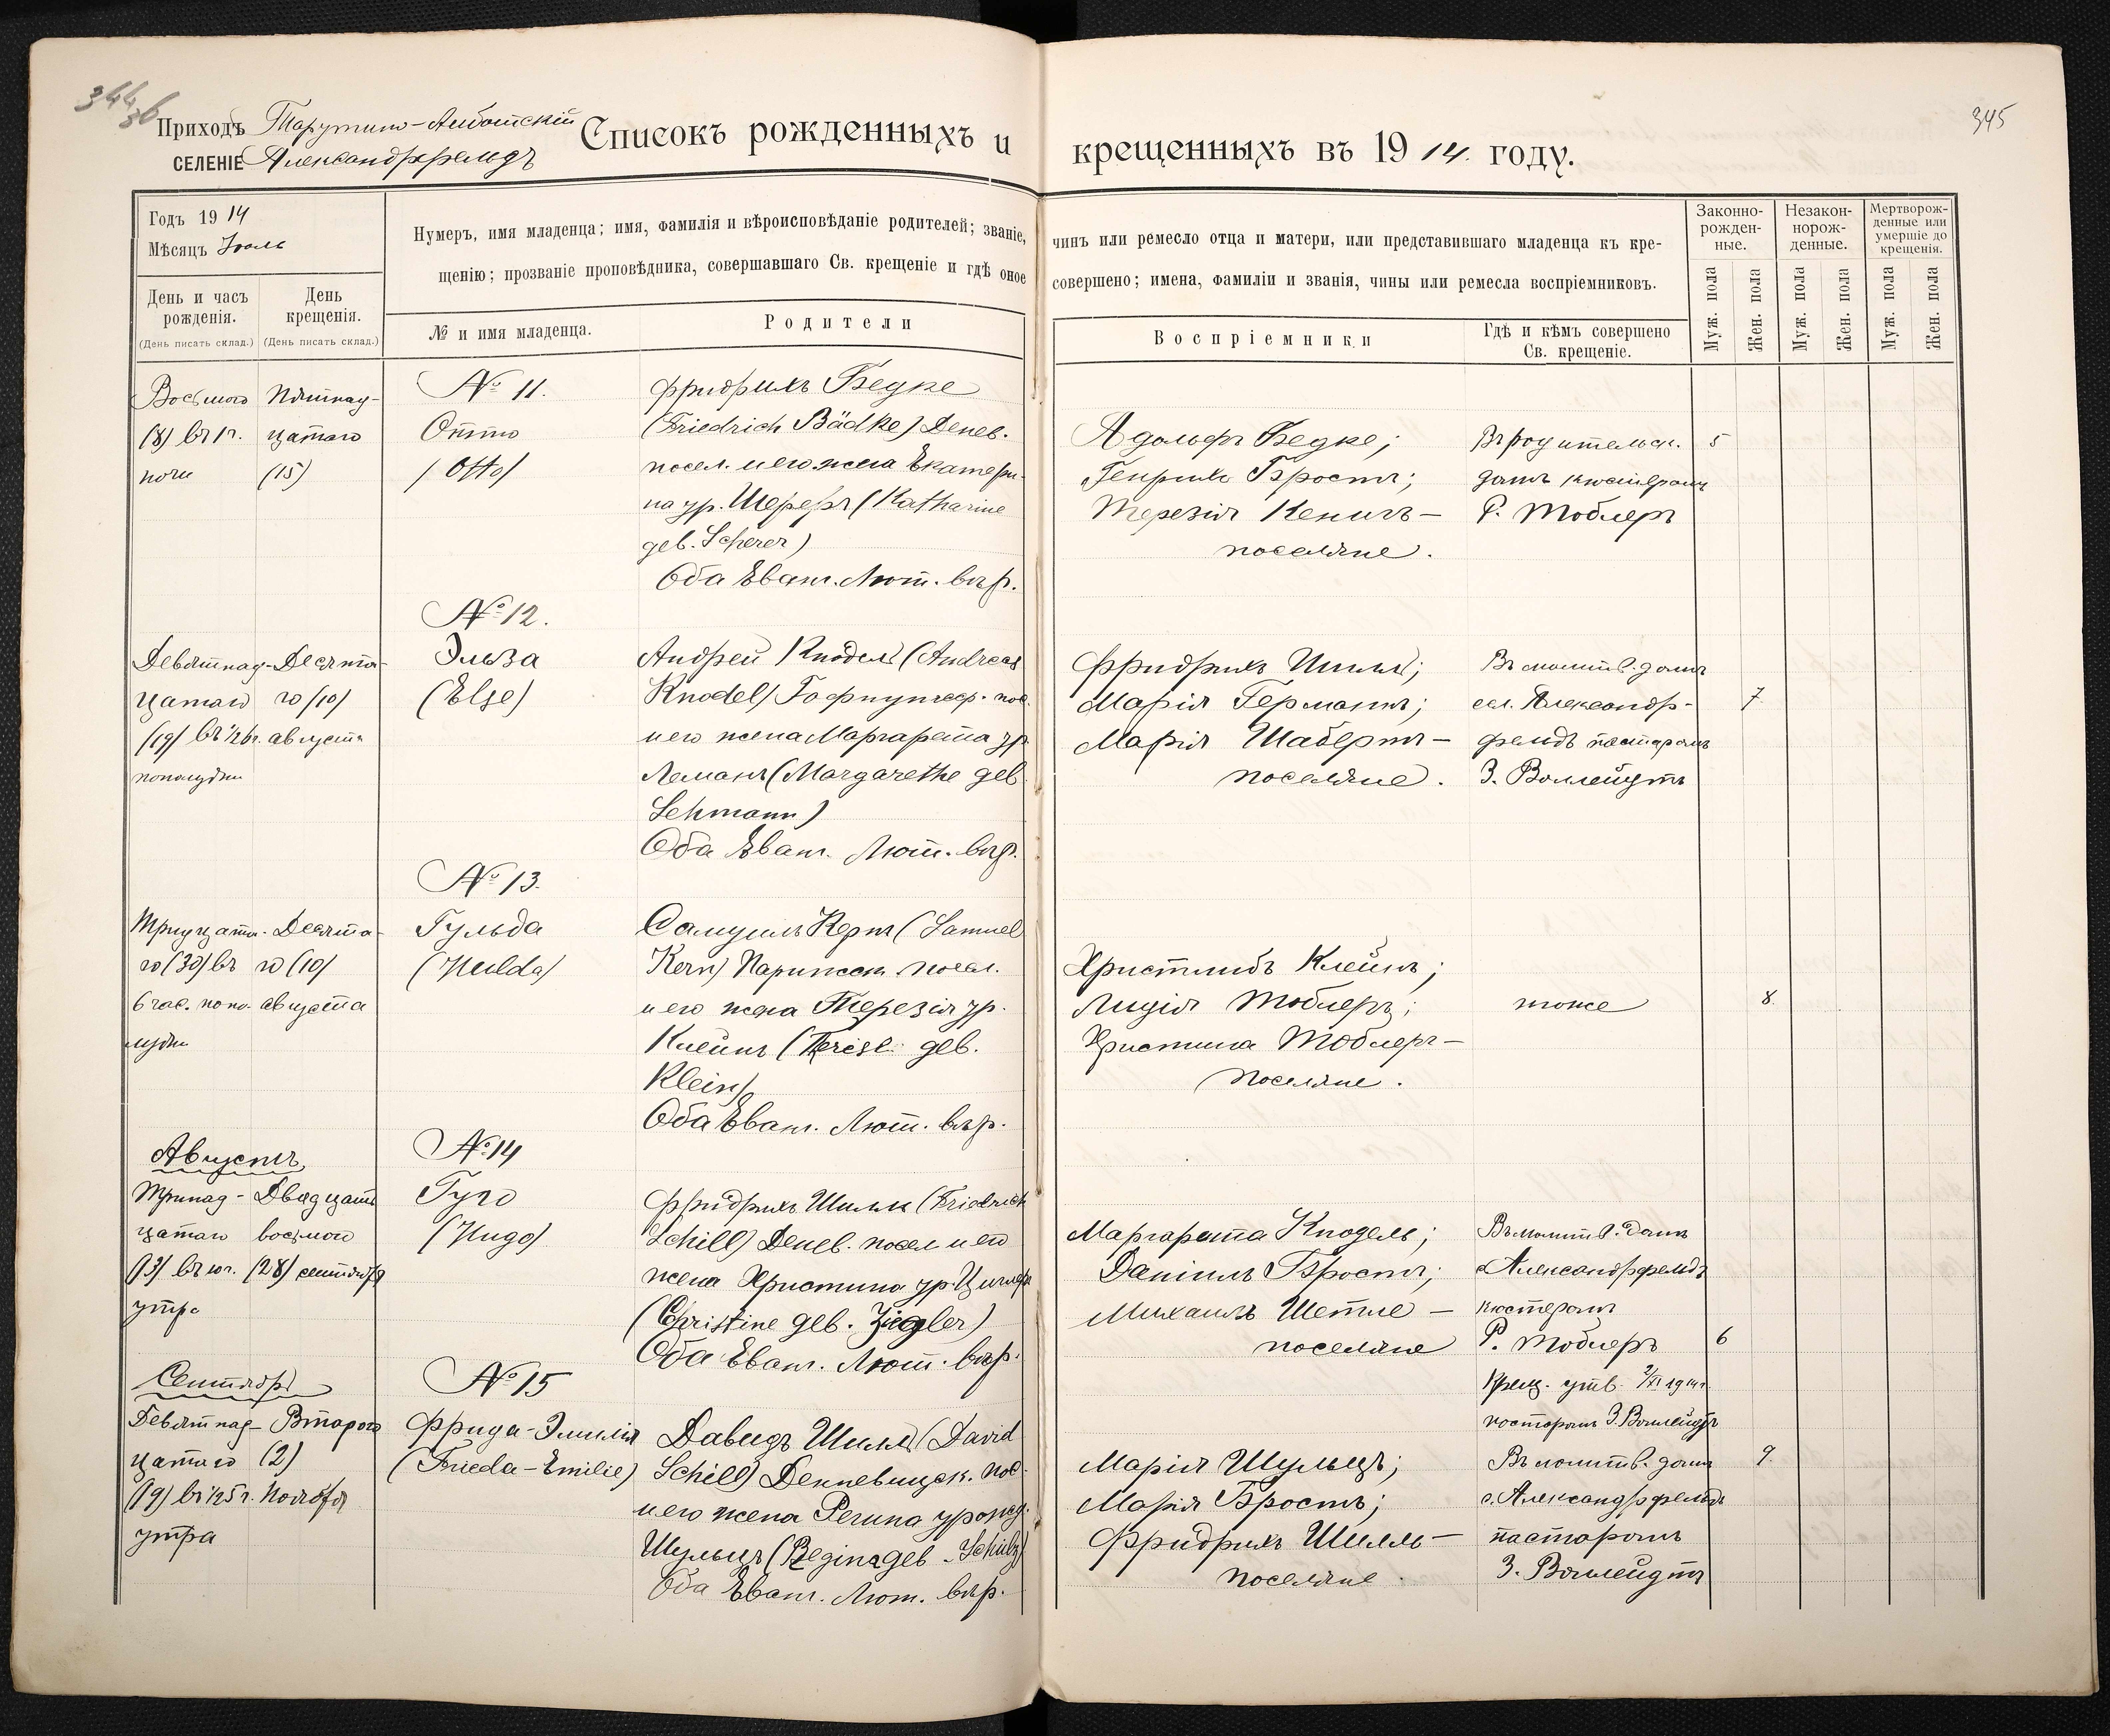 344
36
345
Приходъ Тарутино-Альботскій
СЕЛЕНІЕ Александрфельдъ
Списокъ рожденныхъ и крещенныхъ въ 1914. году.
Годъ 1914
Мѣсяцъ Іюль
Нумеръ, имя младенца; имя, фамилія и вѣроисповѣданіе родителей; званіе, чинъ или ремесло отца и матери, или представившаго младенца къ кре-
щенію; прозваніе проповѣдника, совершавшаго Св. крещеніе и гдѣ оное совершено; имена, фамиліи и званія, чины или ремесла воспріемниковъ.
День и часъ
рожденія.
(День писать склад.)
День
крещенія.
(День писать склад.)
№ и имя младенца.
Родители
Воспріемники
Гдѣ и кѣмъ совершено
Св. крещеніе.
Законно-
рожден-
ные.
Незакон-
норож-
денные.
Мертворож-
денные или
умершіе до
крещенія.
Муж. пола
Жен. пола
Муж. пола
Жен. пола
Муж. пола
Жен. пола
Восьмого
(8) въ 1 ч.
ночи
Пятнад-
цатаго
(15)
№ 11.
Отто
(Otto)
Фридрихъ Бедке
(Friedrich Bädke) Денев.
посел. и его жена Екатери-
на ур. Шереръ (Katharine
geb. Scherer)
Оба Еванг. Лют. вѣр.
Адольфъ Бедке;
Генрихъ Бростъ;
Терезія Кенигъ —
поселяне.
Въ родительск.
домѣ кюстеромъ
Р. Тоблеръ
5
Девятнад-
цатаго
(19) въ ½6 ч.
пополудни
Десята-
го (10)
августа
№ 12.
Эльза
(Else)
Андрей Кнодель (Andreas
Knodel) Гофнунгсф. пос.
и его жена Маргарета ур.
Леманъ (Margarethe geb.
Lehmann)
Оба Еванг. Лют. вѣр.
Фридрихъ Шилль;
Марія Германъ;
Марія Шабертъ —
поселяне.
Въ молитв. домѣ
сел. Александр-
фельдъ пасторомъ
З. Воллейдтъ
7
Тридцата-
го (30) въ
6 час. попо-
лудни
Десята-
го (10)
августа
№ 13.
Гульда
(Hulda)
Самуилъ Кернъ (Samuel
Kern) Парижск. посел.
и его жена Терезія ур.
Клейнъ (Therese geb.
Klein)
Оба Еванг. Лют. вѣр.
Христлибъ Клейнъ;
Лидія Тоблеръ;
Христина Тоблеръ —
поселяне.
тоже
8.
Августъ
Тринад-
цатаго
(13) въ 10 ч.
утра
Двадцать
восьмого
(28) сентября
№ 14
Гуго
(Hugo)
Фридрихъ Шилль (Friedrich
Schill) Денев. посел. и его
жена Христина ур. Циглеръ
(Christine geb. Ziegler)
Оба Еванг. Лют. вѣр.
Маргарета Кнодель;
Даніилъ Бростъ;
Михаилъ Шетле —
поселяне
Въ молитв. домѣ
Александрфельдъ
кюстеромъ
Р. Тоблеръ
Крещ. утв. 2/XI 1914 г.
пасторомъ З. Воллейдтъ
6
Сентябрь
Девятнад-
цатаго
(19) въ ½5 ч.
утра
Второго
(2)
Ноября
№ 15
Фрида-Эмилія
(Frieda-Emilie)
Давидъ Шилль (David
Schill) Денневицск. пос.
и его жена Регина урожд.
Шульцъ (Regina geb. Schulz)
Оба Еванг. Лют. вѣр.
Марія Шульцъ;
Марія Бростъ;
Фридрихъ Шилль —
поселяне.
Въ молитв. домѣ
с. Александрфельдъ
пасторомъ
З. Воллейдтъ
9.